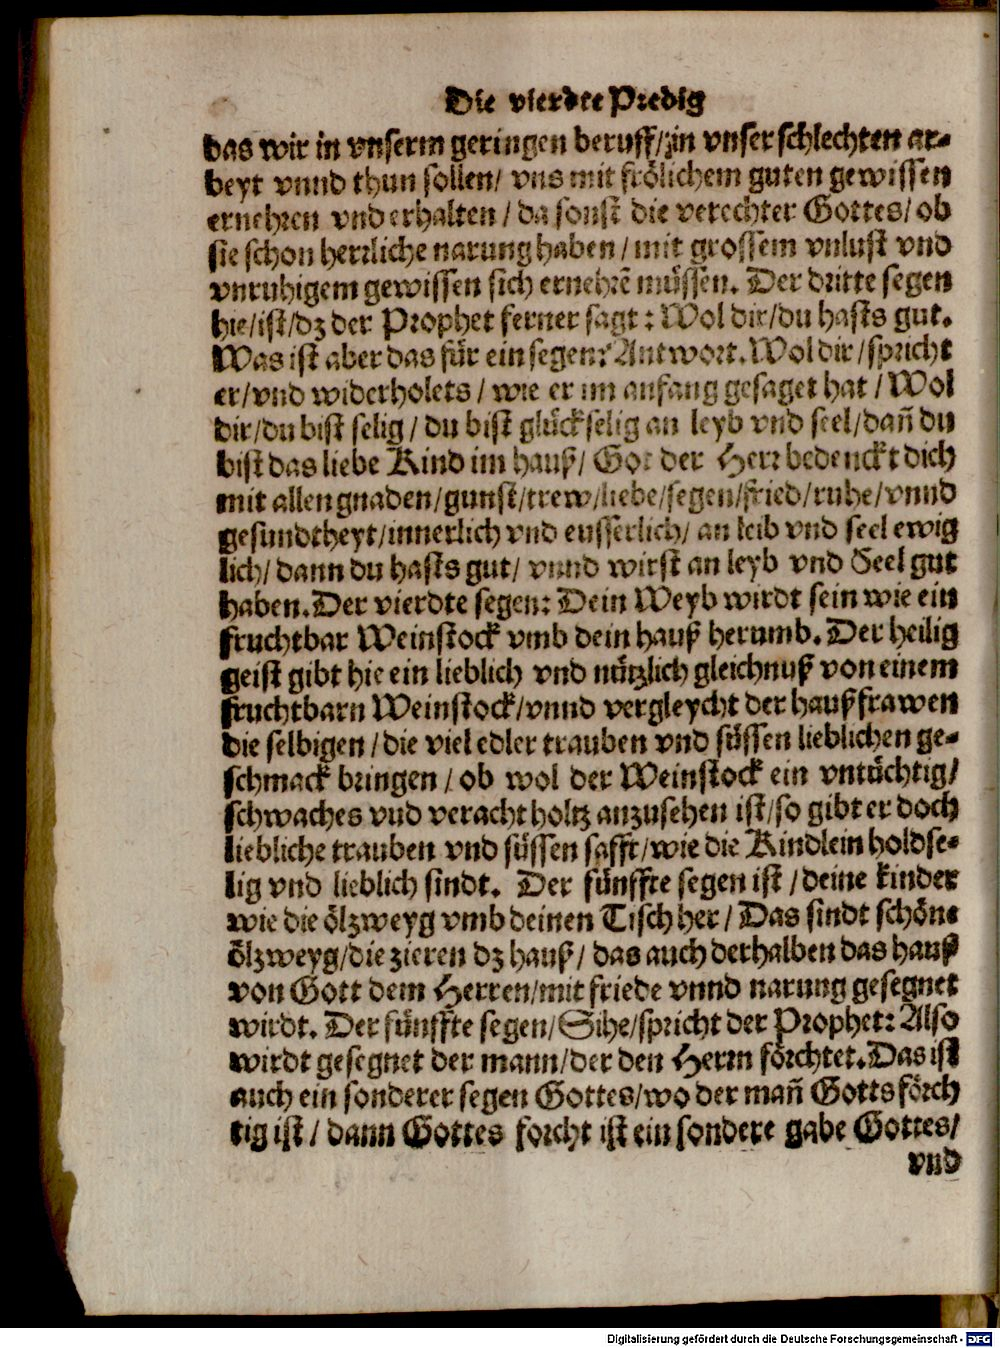 Die vierdte Predig
das wir in vnserm geringen beruff/ in vnser schlechten ar-
beyt vnnd thun sollen/ vns mit frölichem guten gewissen
ernehren vnd erhalten/ da sonst die verechter Gottes/ ob
sie schon herrliche narung haben/ mit grossem vnlust vnd
vnruhigem gewissen sich ernehrẽ müssen. Der dritte segen
hie/ist/dz der Prophet ferner sagt: Wol dir/du hasts gut.
Was ist aber das für ein segen? Antwort. Wol dir/ spricht
er/vnd widerholets/ wie er im anfang gesaget hat/ Wol
dir/du bist selig/ du bist glückselig an leyb vnd seel/dañ du
bist das liebe Kind im hauß/ Got der Herr bedenckt dich
mit allen gnaden/gunst/trew/liebe/segen/fried/ruhe/vnnd
gesundtheyt/innerlich vnd eusserlich/ an leib vnd seel ewig
lich/ dann du hasts gut/ vnnd wirst an leyb vnd Seel gut
haben. Der vierdte segen: Dein Weyb wirdt sein wie ein
fruchtbar Weinstock vmb dein hauß herumb. Der heilig
geist gibt hie ein lieblich vnd nützlich gleichnuß von einem
fruchtbarn Weinstock/vnnd vergleycht der haußfrawen
die selbigen/die viel edler trauben vnd süssen lieblichen ge-
schmack bringen/ ob wol der Weinstock ein vntüchtig/
schwaches vnd veracht holtz anzusehen ist/so gibt er doch
liebliche trauben vnd süssen safft/wie die Kindlein holdse-
lig vnd lieblich sindt. Der fünffte segen ist/deine kinder
wie die ölzweyg vmb deinen Tisch her/ Das sindt schöne
ölzweyg/die zieren dz hauß/ das auch derhalben das hauß
von Gott dem Herren/mit friede vnnd narung gesegnet
wirdt. Der fünffte segen/Sihe/spricht der Prophet: Also
wirdt gesegnet der mann/der den Herrn förchtet. Das ist
auch ein sonderer segen Gottes/wo der mañ Gotts förch
tig ist/ dann Gottes forcht ist ein sondere gabe Gottes/
vnd
Digitalisierung gefördert durch die Deutsche Forschungsgemeinschaft - DFG